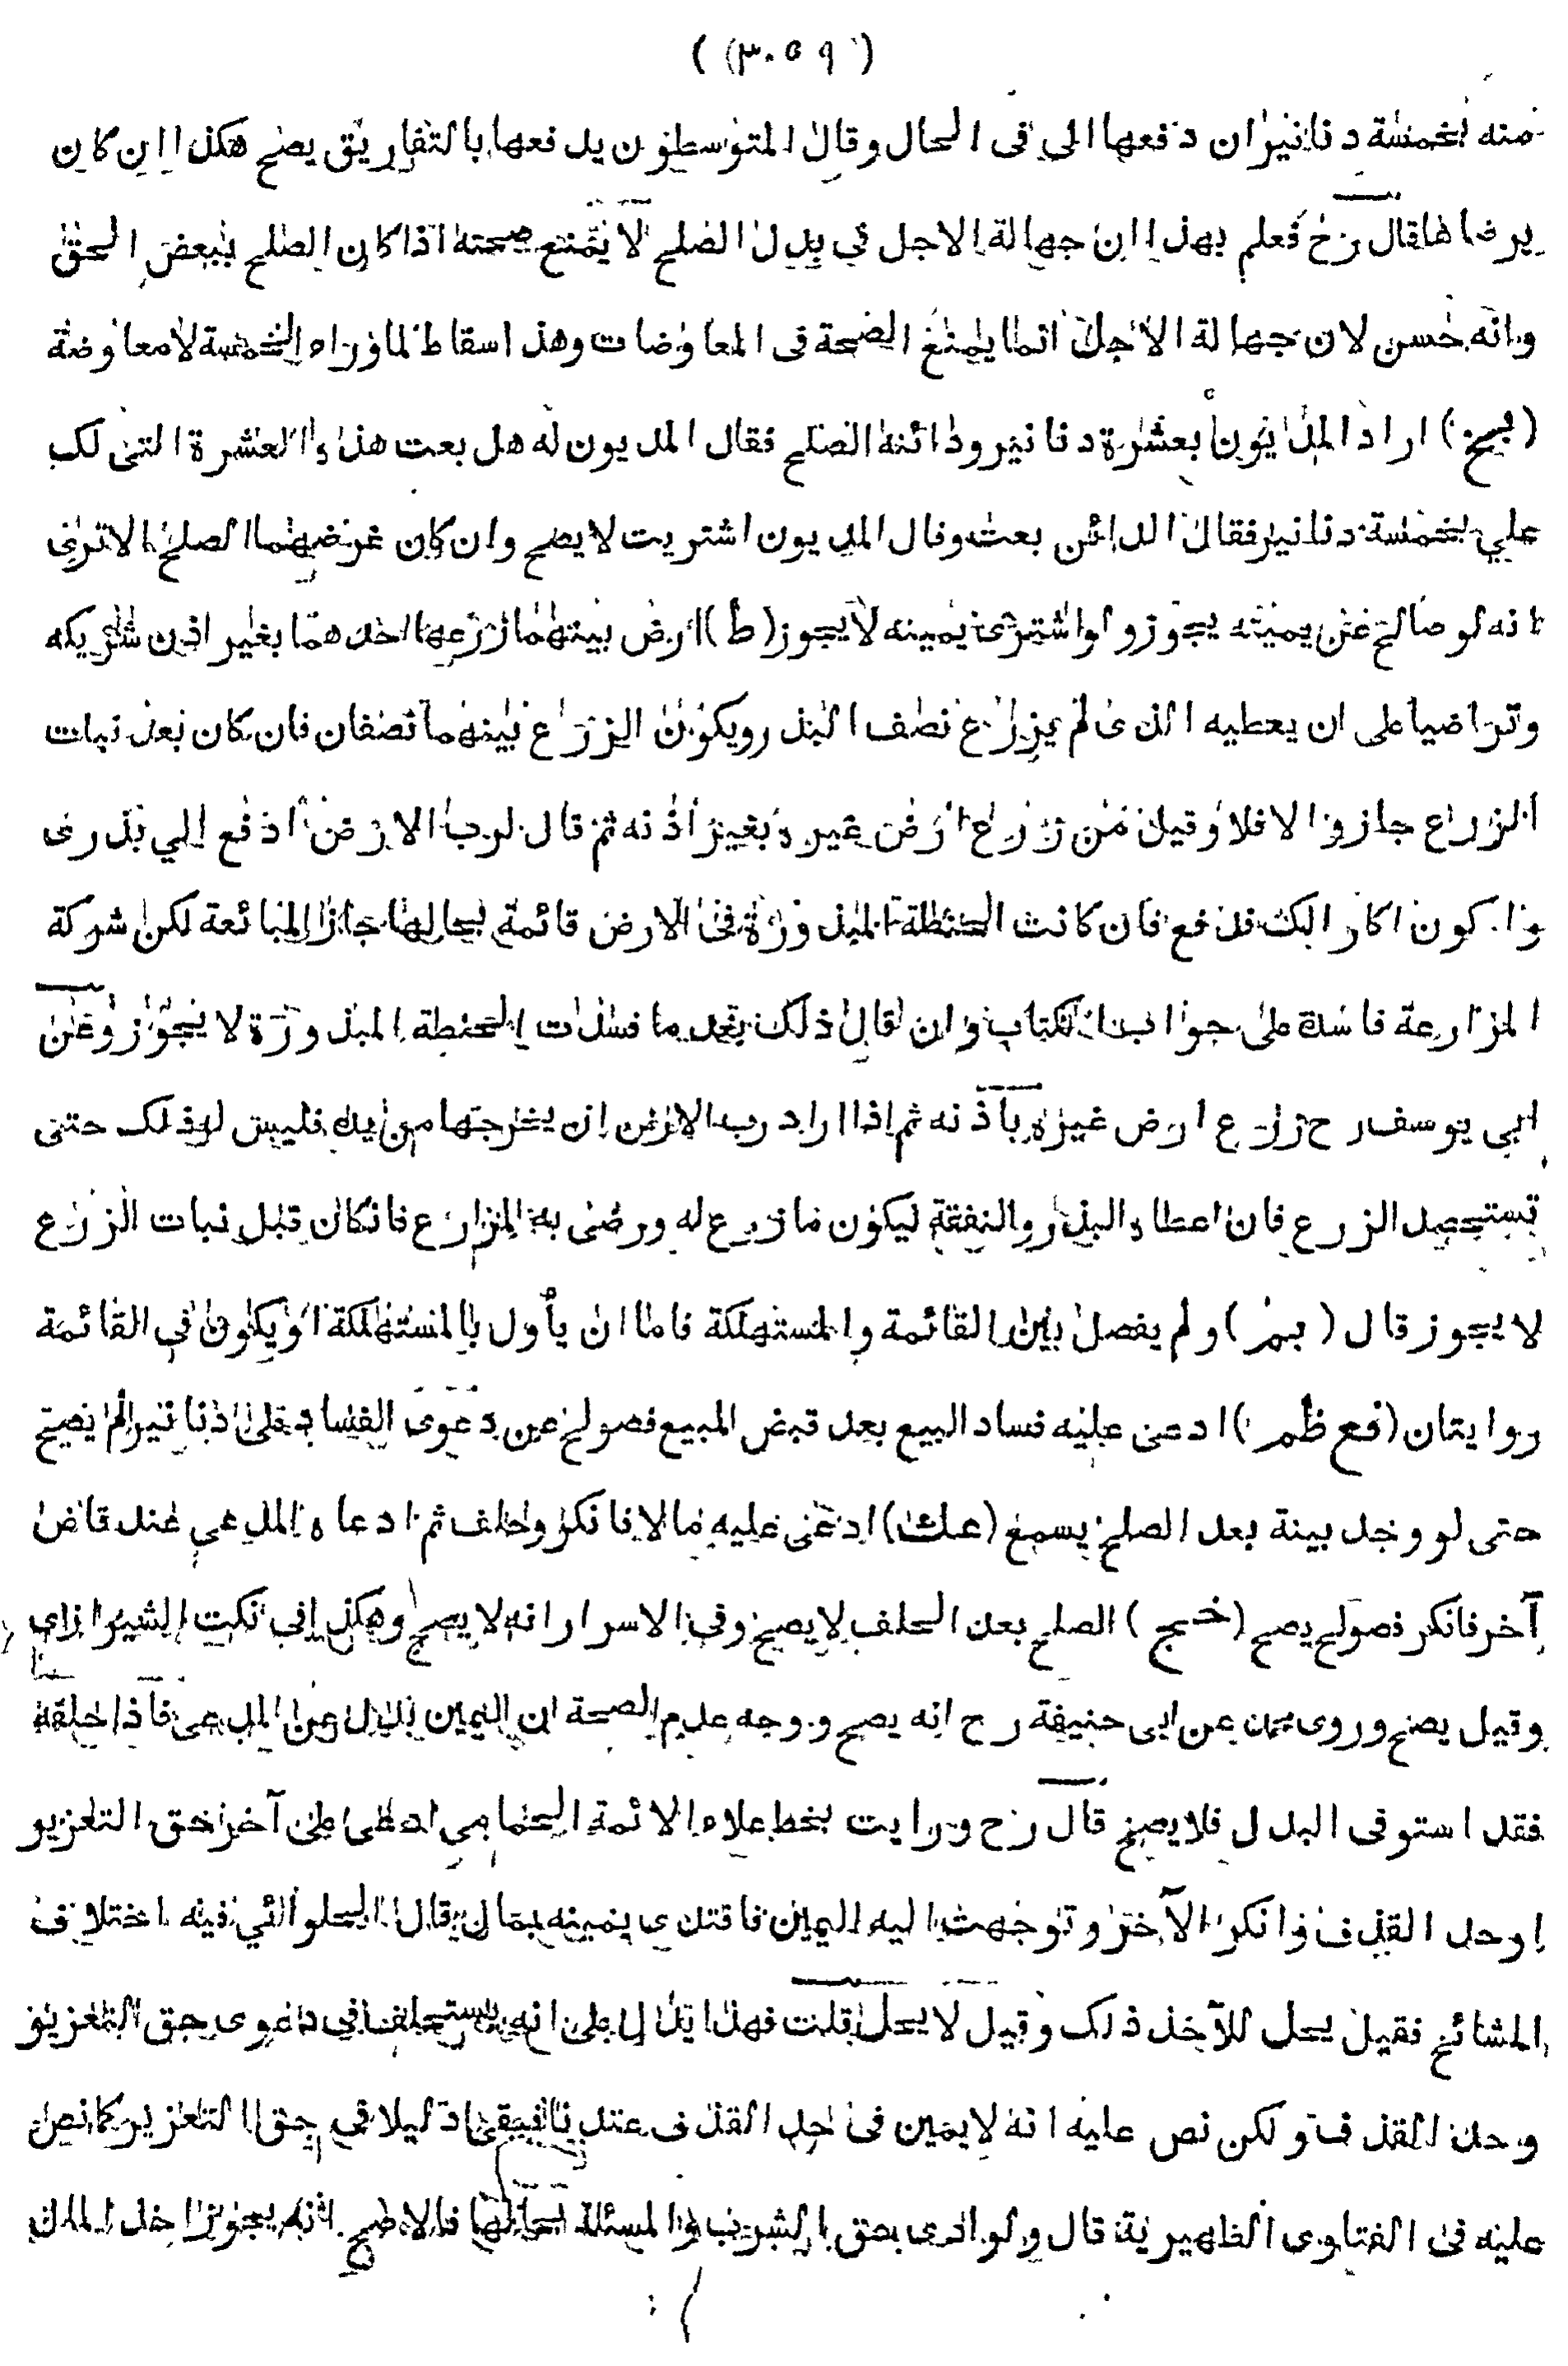 (٣٠٥٩)
منه بخمسة دنانيران دفعها الي فى الحال وقال المتوسطون يدفعها بالتفاريق يصح هكذا ان كان
برضاهما قال رح فعلم بهذا ان جهالة الاجل في بدل الصلح لا يمنع صحته اذا كان الصلح ببعض الحق
وانه حسن لان جهالة الاجل انما يمنع الصحة فى المعاوضات وهذا اسقاط لما وراء الخمسة لا معاوضة
اراد المديون بعشرة دنانير ودائنه الصلح فقال المديون له هل بعت هذه العشرة التى لك
علي بخمسة دنانير فقال الدائن بعت وقال المديون اشتريت لا يصح وان كان غرضهما الصلح الا ترى
انه لو صالح عن يمينه يجوز ولو اشترى يمينه لا يجوز (ط) ارض بينهما زرعها احدهما بغير اذن شريكه
وتراضيا على ان يعطيه الذى لم يزرع نصف البذر ويكون الزرع بينهما نصفان فان كان بعد نبات
الزرع جاز والا فلا وقيل من زرع ارض غيره بغير اذنه ثم قال لرب الارض ادفع الي بذرى
واكون اكارالك فدفع فان كانت الحنطة المبذورة فى الارض قائمة بحالها جاز المبائعة لكن شركة
المزارعة فاسدة على جواب الكتاب وان قال ذلك بعد ما فسدت الحنطة المبذورة لا يجوز وعن
ابى يوسف رح زرع ارض غيره باذنه ثم اذا اراد رب الارض ان يخرجها من يده فليس له ذلك حتى
تستحصد الزرع فان اعطاه البذر والنفقة ليكون ما زرع له ورضى به المزارع فانكان قبل نبات الزرع
لا يجوز قال (بم) ولم يفصل بين القائمة والمستهلكة فاما ان يأول بالمستهلكة او يكون في القائمة
روايتان (فع ظم) ادعى عليه فساد البيع بعد قبض المبيع فصولح عن دعوى الفساد على دنانير لم يصح
حتى لو وجد بينة بعد الصلح يسمع (عك) ادعى عليه مالا فانكر وحلف ثم ادعاه المدعي عند قاض
آخر فانكر فصولح يصح الصلح بعد الحلف لا يصح وفى الاسرار انه لا يصح وهكذا فى نكت الشيرازى
وقيل يصح وروى محمد عن ابى حنيفة رح انه يصح ووجه عدم الصحة ان اليمين بدل عن المدعى فاذا حلفه
فقد استوفى البدل فلا يصح قال رح ورايت بخط علاء الائمة الحمامي ادعى على آخر حق التعزير
او حد القذف وانكر الآخر وتوجهت اليه اليمين فافتدى يمينه بمال قال الحلوائي فيه اختلاف
المشائخ فقيل يحل للآخذ ذلك وقيل لا يحل قلت فهذا يدل على انه يستحلف فى دعوى حق التعزير
وحد القذف ولكن نص عليه انه لا يمين فى حد القذف عندنا فبقى دليلا في حق التعزير كما نص
عليه فى الفتاوى الظهيرية قال ولو ادعى بحق الشرب والمسئلة بحالها فالاصح انه يجوز اخذ المال